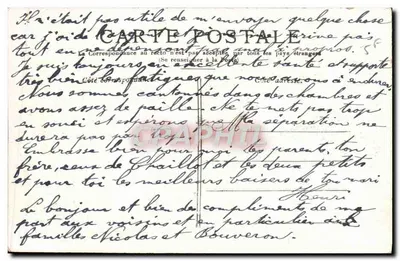 Il n'était pas utile de m'envoyer quelque chose
car j'ai de
CARTE POSTALE
pas
58
tout en
La Correspondance au recto n'est pas acceptée par tous les pays étrangers
(Se renseigner à la Poste)
Je suis toujours en excellente santé et supporte
très bien les fatigues que nous avons à endurer
Correspondance
Adresse
Nous sommes cantonnés dans des chambres et
avons assez de paille. Ne te mets pas trop
en souci et espérons que la séparation ne
durera pas trop
Embrasse bien les parents, ton
frère, ceux de Chaillot et les deux petits
et pour toi les meilleurs baisers de ton mari
Henri
Le bonjour et bien des compliments de ma
part aux voisins et en particulier aux
familles Nicolas et Bouveron.